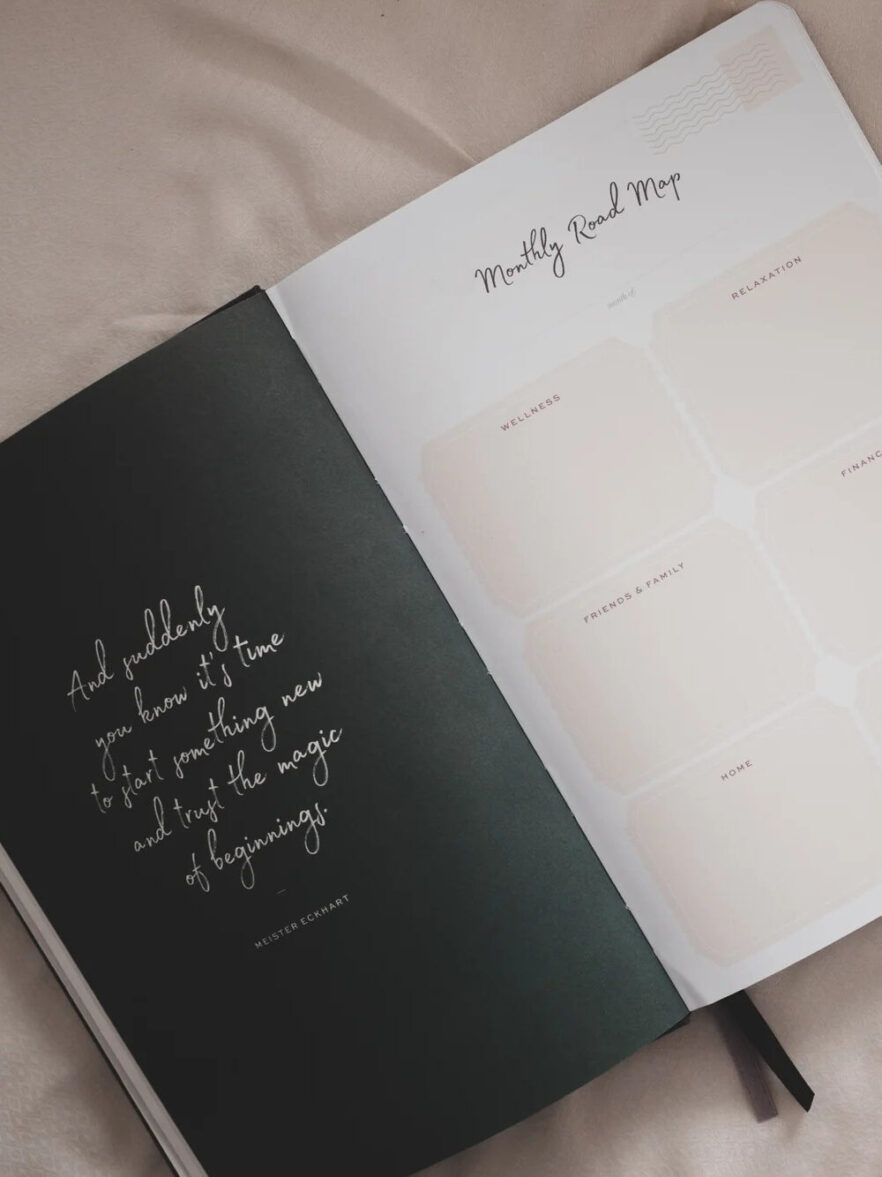 And suddenly
you know it's time
to start something new
and trust the magic
of beginnings.
MEISTER ECKHART
Monthly Road Map
month of
WELLNESS
RELAXATION
FRIENDS & FAMILY
FINANC
HOME